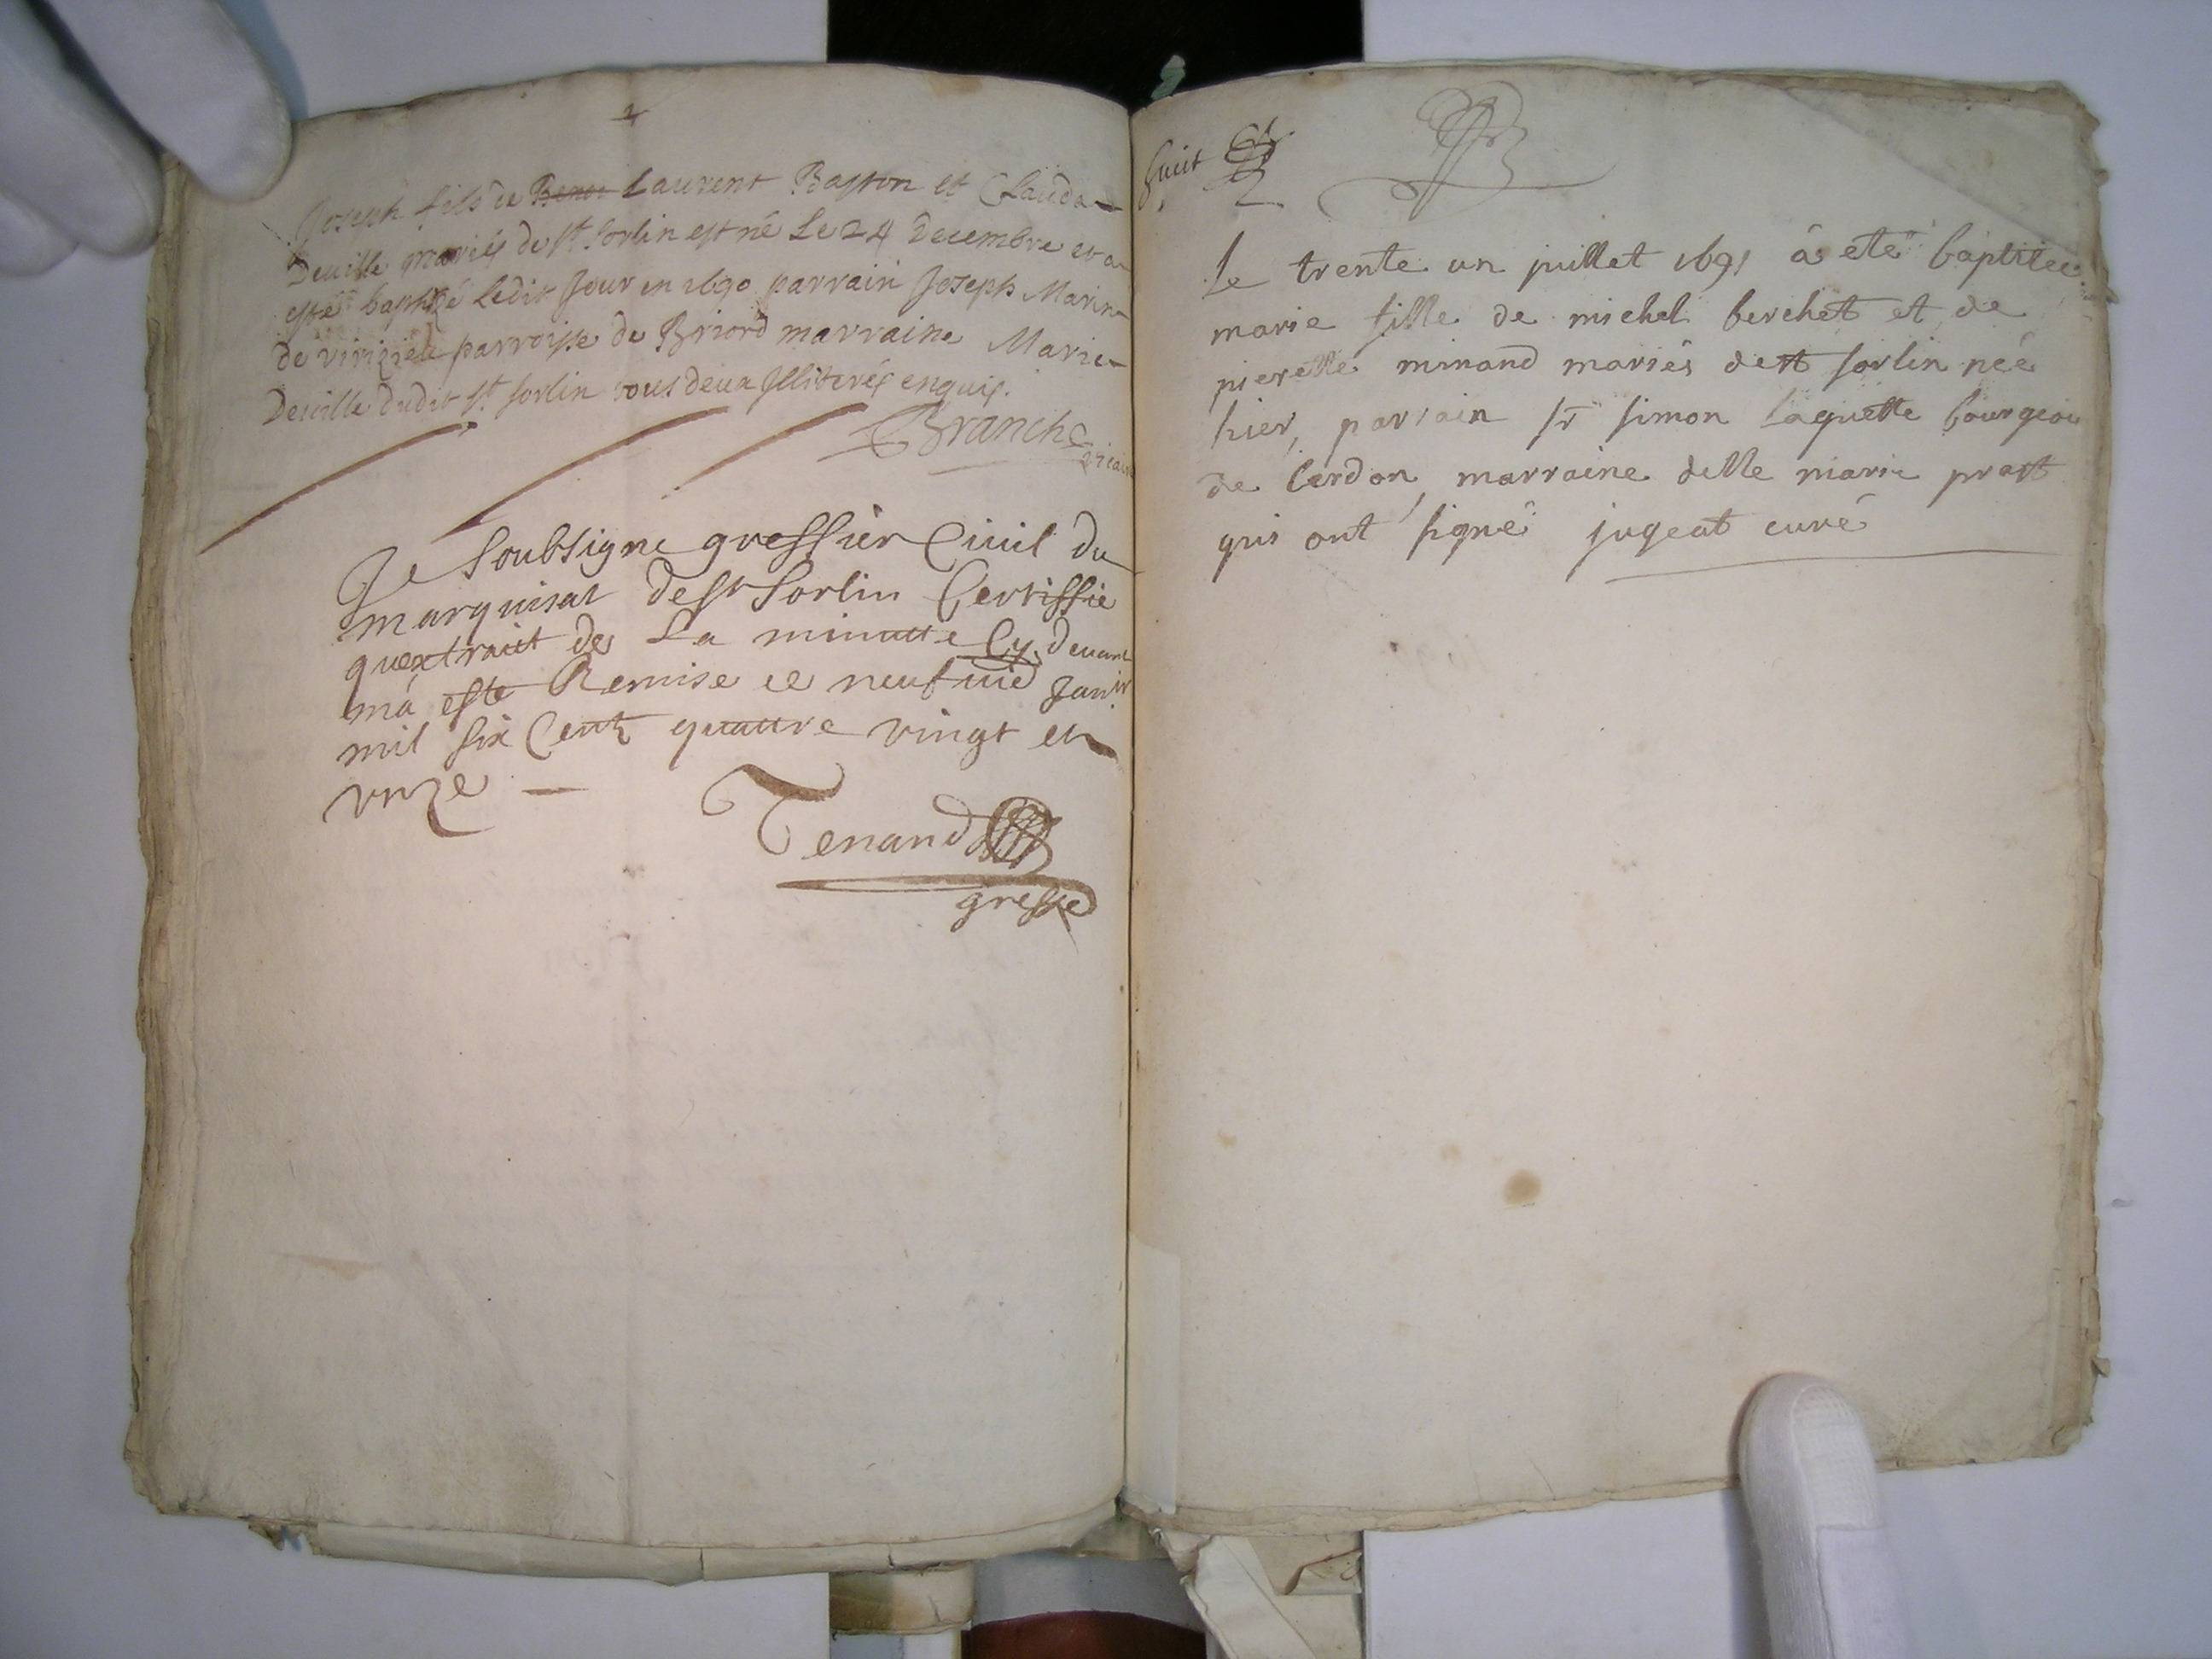 Joseph fils de Benoi Laurent Baston et Clauda
Deville mariés de St Sorlin est né Le 24 Decembre et a
esté baptizé Ledit Jour en 1690 parrain Joseph Marin
de parroisse de Briord marraine Marie
Deville dudit St Sorlin tous deux Illiterés enquis.
Branche
vicaire
Je Soubsigne greffier Civil du
marquisat de St Sorlin Certiffie
quextrait de La minutte Cy devant
má este Remise ce neufvie Janvr
mil six Centz quattre vingt et
unze
Tenand
greffe
huit
Le trente un juillet 1691 à eté baptisée
marie fille de michel berchet et de
pierette minand mariés de st sorlin née
hier, parrain sr simon laguette bourgeois
de Cerdon, marraine delle marie prost
qui ont signé jugeat curé